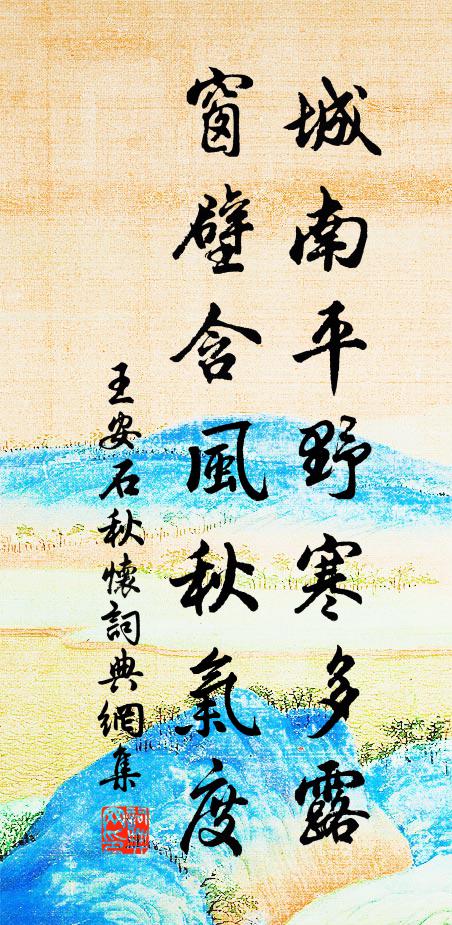 城南平野寒多露
窗壁含風秋氣度
王安石秋懷詞典網集